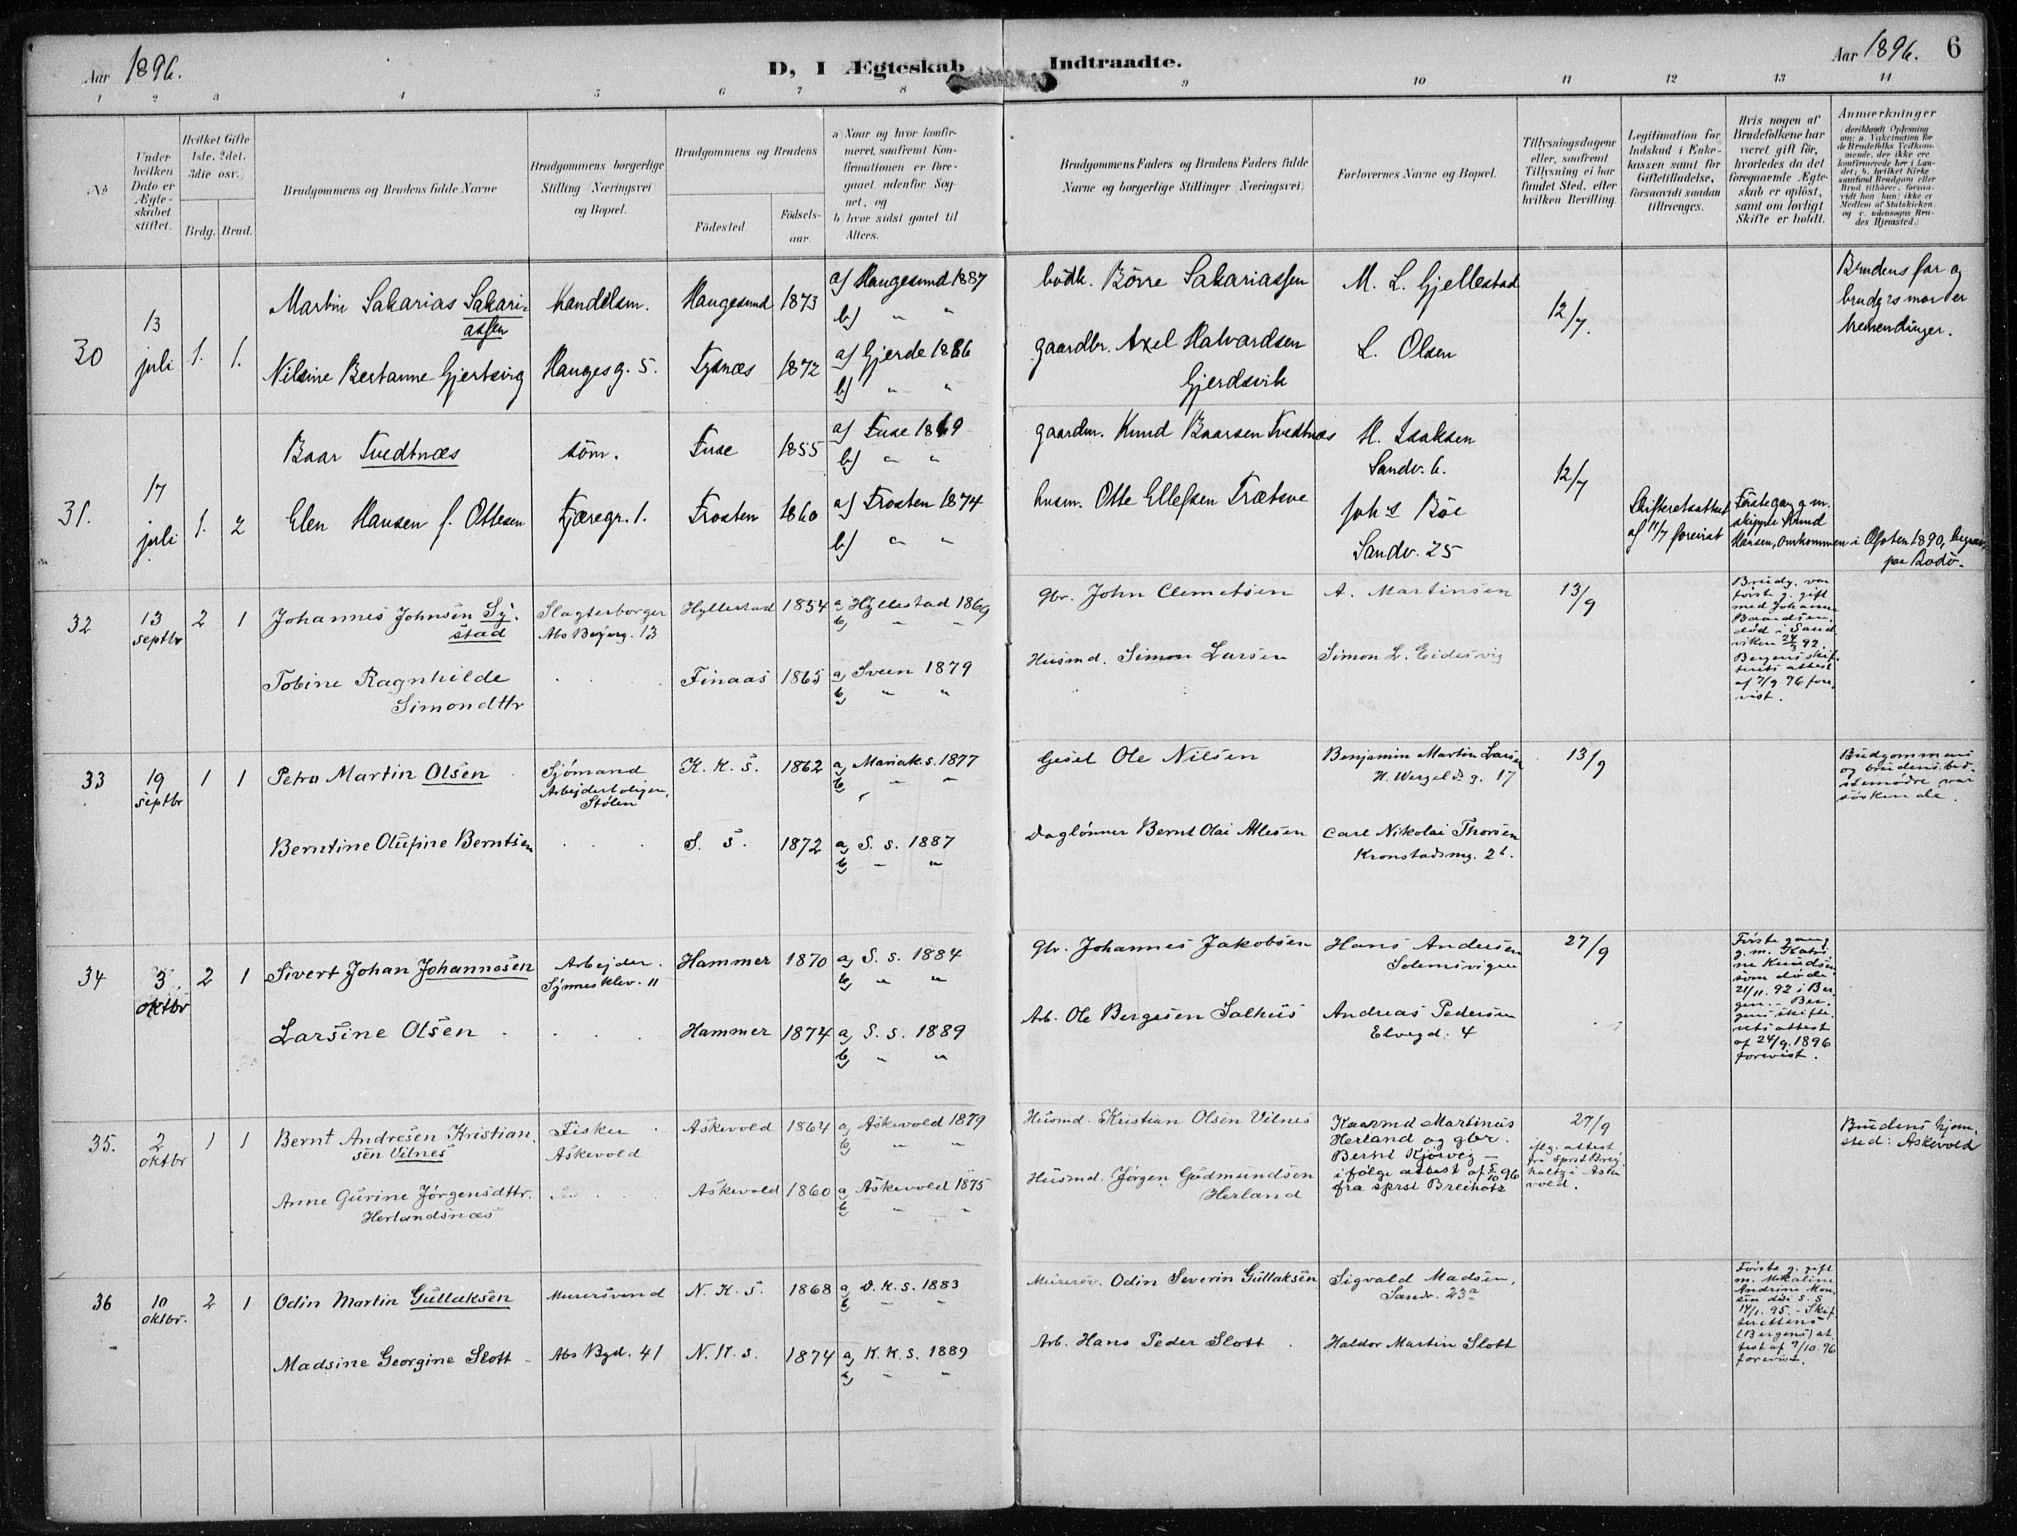 Aar 1896.
D, I Ægteskab Indtraadte.
Aar 1896. 6
1 2 3 4 5 6 7 8 9 10 11 12 13 14
No
Under hvilken Dato er Ægteskabet stiftet.
Hvilket Gifte 1ste, 2det, 3die osv.)
Brdg. Brud.
Brudgommens og Brudens fulde Navne
Brudgommens borgerlige Stilling (Næringsvei) og Bopæl.
Brudgommens og Brudens
Fødested
Fødselsaar.
a) Naar og hvor konfirmeret, saafremt Konfirmationen er foregaaet udenfor Sognet, og
b) hvor sidst gaaet til Alters.
Brudgommens Faders og Brudens Faders fulde Navne og borgerlige Stillinger (Næringsvei)
Forlovernes Navne og Bopæl.
Tillysningsdagene eller, saafremt Tillysning ei har fundet Sted, efter hvilken Bevilling.
Legitimation for Indskud i Enkekassen samt for Giftetilladelse, forsaavidt saadan tiltrænges.
Hvis nogen af Brudefolkene har været gift før, hvorledes da det foregaaende Ægteskab er opløst, samt om lovligt Skifte er holdt.
Anmærkninger
(deriblandt Oplysning om: a. Vakcination for de Brudefolks Vedkommende, der ikke ere konfirmerede her i Landet; b. hvilket Kirkesamfund Brudgom eller Brud tilhører, forsaavidt han (hun) ikke er Medlem af Statskirken, og c. udensogns Brudes Hjemsted.)
30
13
juli
1. 1.
Martin Sakarias Sakari-
assen
Handelsm. Haugesund 1873
a) Haugesund 1887
b) " "
bødk. Børre Sakariassen
M. L. Gjellestad
12/7.
Brudens far og
brudgs mor er
tremendinger.
Nilsine Bertanne Gjertsvig
Haugesg. 5. Tysnæs 1872
a) Gjerde 1886
b) " "
gaardbr. Axel Halvardsen
Gjerdsvik
L. Olsen
31.
17
juli
1. 2
Baar Tvedtnæs
søm. Fuse 1855
a) Fuse 1869
b) " "
gaardm. Knud Baarsen Tvedtnæs
H. Isaksen
Sandv. 6.
12/7
Elen Hansen f. Ottesen
Fjæregr. 1. Frosten 1860
a) Frosten 1874
b) " "
husm. Otte Ellefsen Trætsve
Johs Bøe
Sandv. 25
Skifteretsattest
af 11/7 forevist
Første gang g. m.
skipper Knud
Hansen, omkommen i Ofoten 1890, begrav.
paa Bodø.
32
13
septbr
2 1
Johannes Johnsen Sy-
stad
Slagterborger
Abs Bejerg. 13
Hyllestad 1854
a) Hyllestad 1869
b) " "
gbr. John Clemetsen
A. Martinsen
13/9
Brudg. var
første g. gift
med Johanne
Baardsen,
død i Sand-
viken 24/3 92.
Bergens skif-
terets attest
af 7/9 96 fore-
vist.
Tobine Ragnhilde
Simondttr
Finaas 1865
a) Sveen 1879
b) " "
Husmd. Simon Larsen
Simon L. Eidesvig
33
19
septbr
1 1
Petra Martin Olsen
Sjømand
Arbejderboliger,
Stølen
K. K. S. 1862
a) Mariak.s. 1877
b) " "
Gesel Ole Nilsen
Benjamin Martin Larsen
H. Wergelds g. 17
13/9
Brudgommens
og brudens bed-
stemødre var
søskende.
Berntine Olufine Berntsen
S. S. 1872
a) S. s. 1887
b) " "
Daglønner Bernt Olai Allesen
Carl Nikolai Thorsen
Kronstadsmg. 26.
34
3.
oktbr
2 1
Sivert Johan Johannesen
Arbejder.
Synnesklev. 11
Hammer 1870
a) S. s. 1884
b) " "
gbr. Johannes Jakobsen
Hans Andersen
Solemsvigen
27/9
Første gang
g. m. Katri-
ne Knudsen
som døde
21/11. 92 i Ber-
gen. - Ber-
gens skifte-
rets attest
af 24/9. 1896
forevist.
Larsine Olsen
Hammer 1874
a) S. s. 1889
b) " "
Arb. Ole Bergesen Salhus
Andreas Pedersen
Elvegd. 4
35.
2
oktbr
1 1
Bernt Andresen Kristian-
sen Vilnes
Fisker
Askevold
Askevold 1864
a) Askevold 1879
b) " "
Husmd. Kristian Olsen Vilnes
Kaarmd Martinus
Herland og gbr.
Bernt Kjørvig -
ifølge attest af 5/10 96
fra sprst Breiholtz
27/9
iflg. attest
fra Sprst Brei-
holtz i Aske-
vold.
Brudens hjem-
sted: Askevold
Anne Gurine Jørgensdttr.
Herlandsnæs
Askevold 1860
a) Askevold 1875
b) " "
Husmd. Jørgen Gudmundsen
Herland
36
10
oktbr.
2 1
Odin Martin Gullaksen
Murersvend
N. K. S. 1868
a) D. K. S. 1883
b) " "
Murersv. Odin Severin Gullaksen
Sigvald Madsen,
Sandv. 23a
Første g. gift
m. Mikaline
Andrine Mon-
sen død S. S.
14/1. 95. - Skif-
terettens
(Bergens) at-
test af 9/10. 96
forevist.
Madsine Georgine Slott
Abs Bgd. 41
N. K. s. 1874
a) K. K. S. 1889
b) " "
Arb. Hans Peder Slott
Haldor Martin Slott